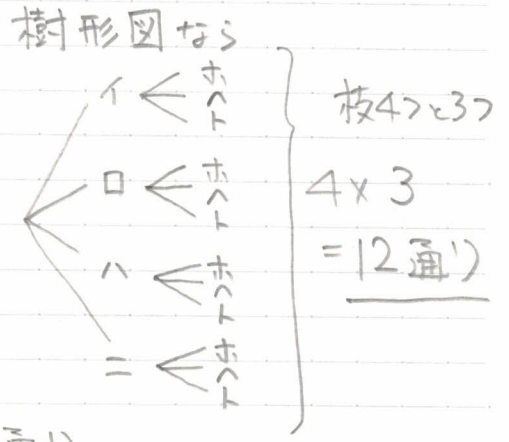 樹形図なら
イ ホ
ヘ
ト
ロ ホ
ヘ
ト
ハ ホ
ヘ
ト
ニ ホ
ヘ
ト
枝4つと3つ
4×3
=12通り
通り